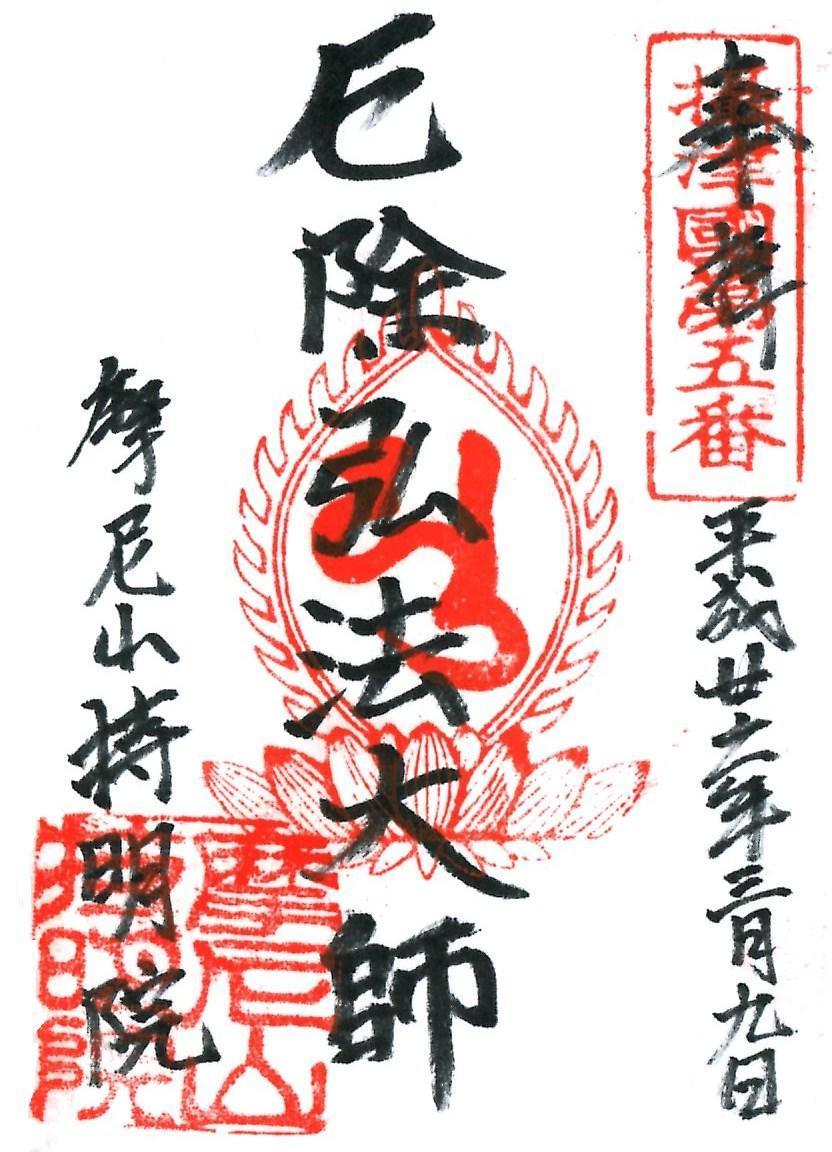 奉拝
攝津國第五番
平成廿六年三月九日
厄除弘法大師
摩尼山持明院
摩尼山
持明院